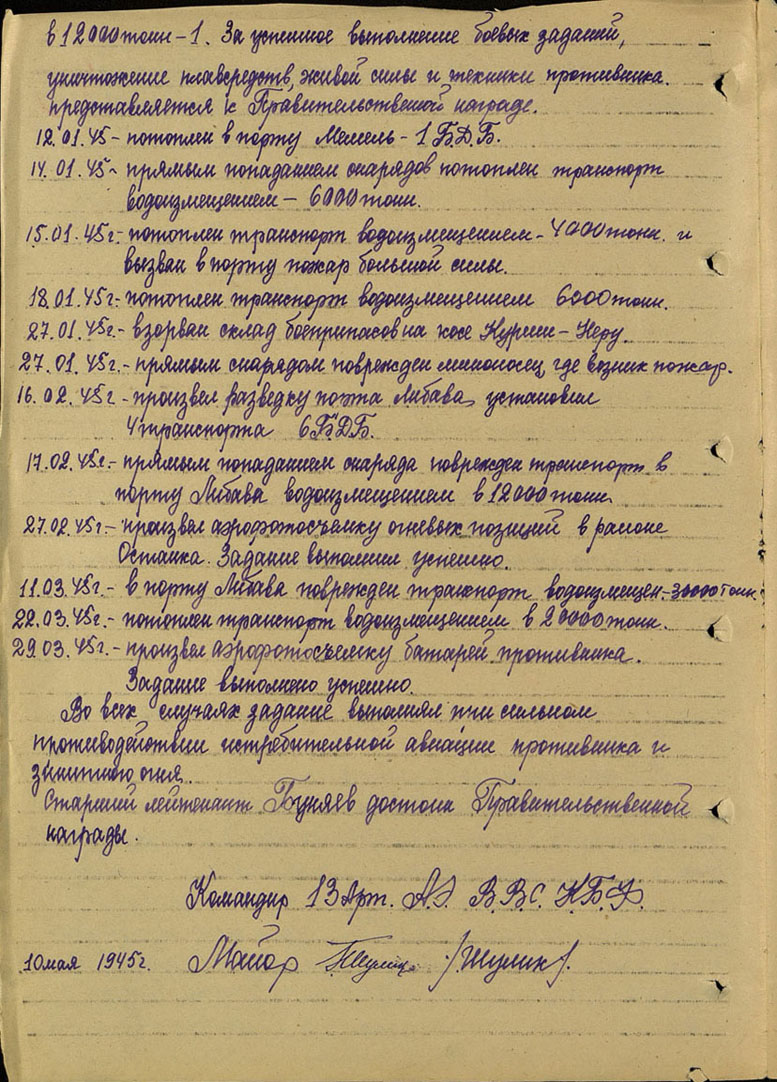 в 12000 тонн – 1. За успешное выполнение боевых заданий,
уничтожение плавсредств, живой силы и техники противника.
представляется к Правительственной награде.
12.01.45 – потоплен в порту Мемель – 1 Б.Д.Б.
14.01.45 – прямым попаданием снарядов потоплен транспорт
водоизмещением – 6000 тонн.
15.01.45г. – потоплен транспорт водоизмещением – 4000 тонн. и
вызван в порту пожар большой силы.
18.01.45г. – потоплен транспорт водоизмещением 6000 тонн.
27.01.45г. – взорван склад боеприпасов на косе Куриш – Неру.
27.01.45г. – прямым снарядом поврежден миноносец, где возник пожар.
16.02.45г – произвел разведку порта Либава, установил
4 транспорта 6 БДБ.
17.02.45г. – прямым попаданием снаряда поврежден транспорт в
порту Либава водоизмещением в 12000 тонн.
27.02.45г. – произвел аэрофотосъемку огневых позиций в районе
Останка. Задание выполнил успешно.
11.03.45г. – в порту Либава поврежден транспорт водоизмещен – тонн.
22.03.45г. – потоплен транспорт водоизмещением в 20000 тонн.
29.03.45г. – произвел аэрофотосъемку батарей противника.
Задание выполнено успешно.
Во всех случаях задание выполнял при сильном
противодействии истребительной авиации противника и
зенитного огня.
Старший лейтенант достоин Правительственной
награды.
Командир 13 Арт. А.Э. В.В.С. К.Б.Ф.
10 мая 1945г. Майор /Жулик/.